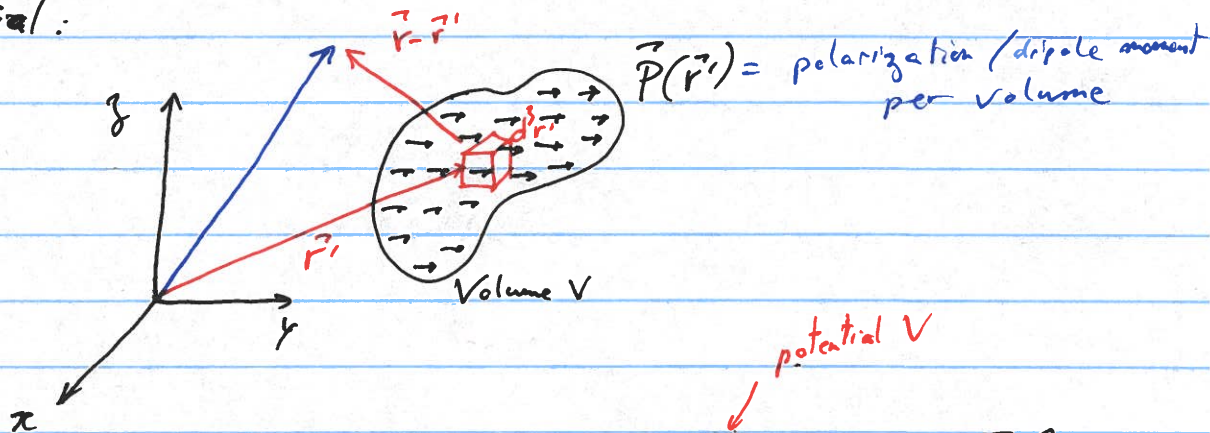 al:
r⃗-r⃗'
P⃗(r⃗') = polarization / dipole moment
per volume
z
d³r'
r⃗'
Volume V
y
potential V
x